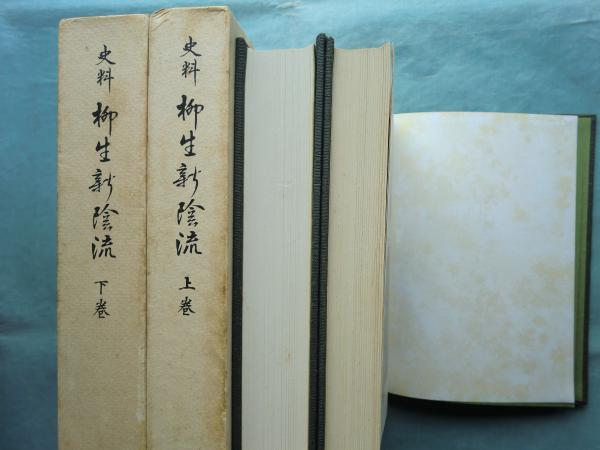 史料 柳生新陰流 上巻
史料 柳生新陰流 下巻